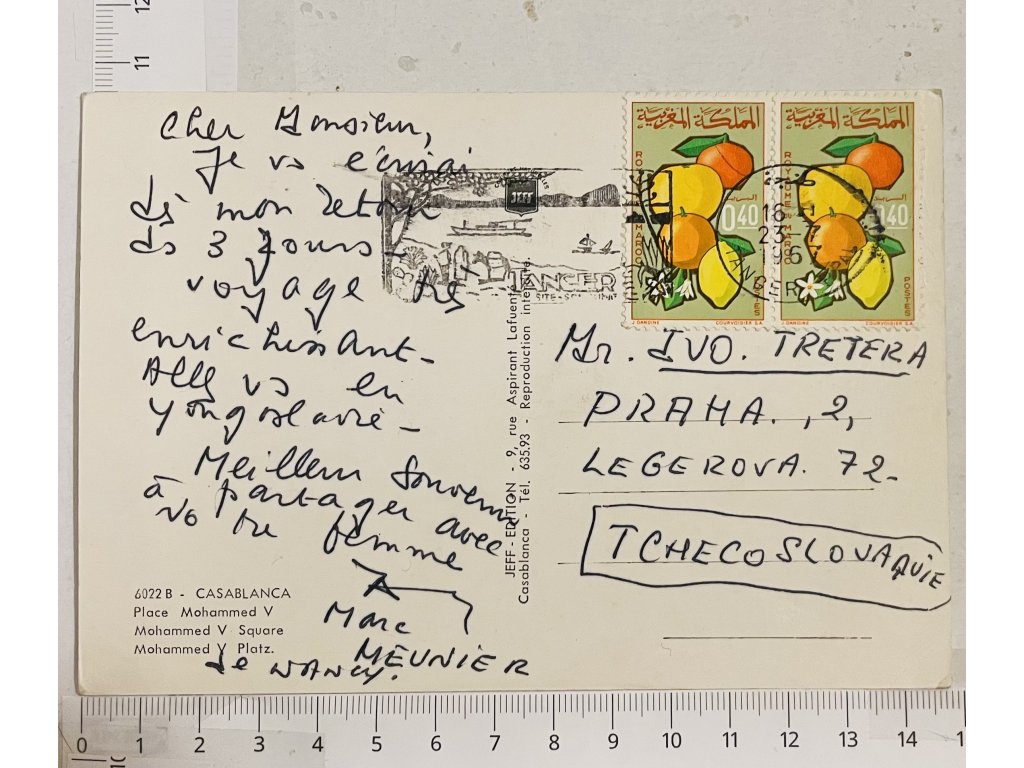 Cher Monsieur,
Je vs écrirai
dès mon retour
ds 3 jours -
voyage très
enrichissant -
Allez vs en
Yougoslavie -
Meilleur Souvenir
à partager avec
votre femme
Marc
MEUNIER
de NANCY.
6022 B - CASABLANCA
Place Mohammed V
Mohammed V Square
Mohammed V Platz.
JEFF - EDITION - 9, rue Aspirant Lafuente
Casablanca - Tél. 635.93 - Reproduction interdite.
JEFF
TANGER
المملكة المغربية
ROYAUME DU MAROC
0.40
POSTES
J. DANDINE
COURVOISIER S.A.
المملكة المغربية
ROYAUME DU MAROC
0.40
POSTES
J. DANDINE
COURVOISIER S.A.
TANGER
16
23
Mr. IVO. TRETERA
PRAHA., 2,
LEGEROVA. 72-
TCHECOSLOVAQUIE
12
11
0 1 2 3 4 5 6 7 8 9 10 11 12 13 14